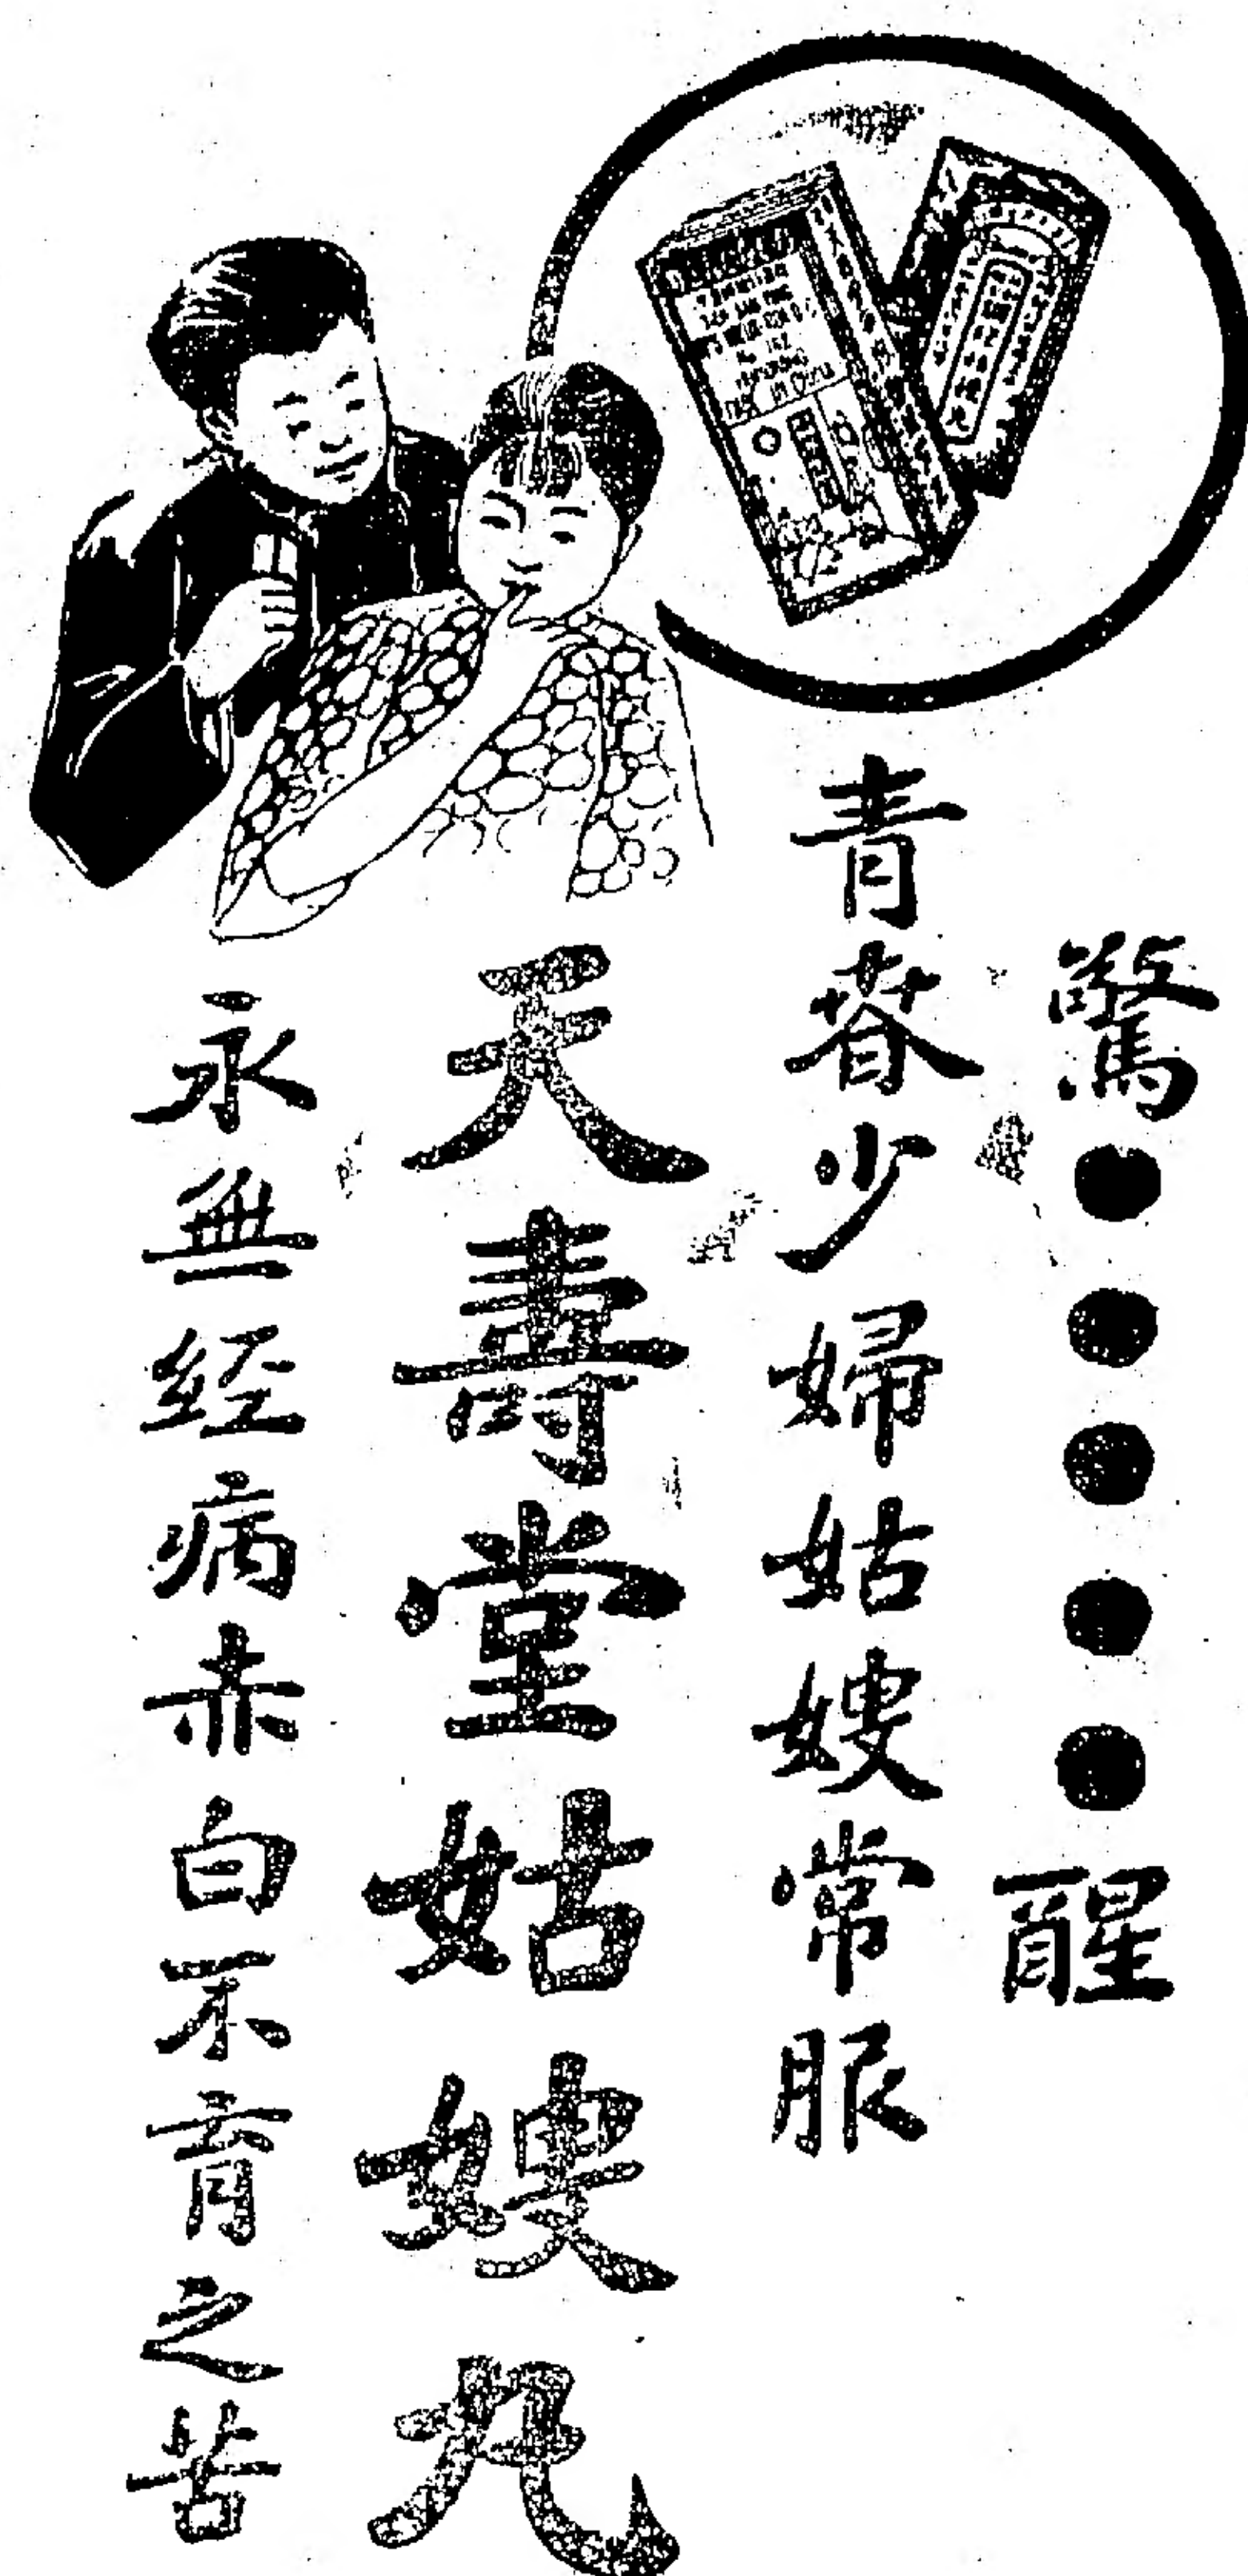 驚●●●●●醒
青春少婦姑嫂常服
天壽堂姑嫂丸
永無經病赤白不育之苦